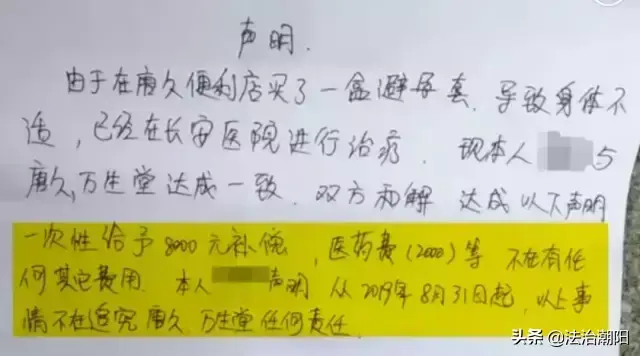 声明.
由于在唐久便利店买了一盒避孕套.导致身体不
适,已经在长安医院进行治疗.现本人 与
唐久,万生堂达成一致.双方和解 达成以下声明
一次性给予8000元补偿,医药费(2000)等 不在有任
何其它费用.本人 声明 从2019年8月31日起,以上事
情不在追究唐久 万生堂任何责任.
头条 @法治潮阳